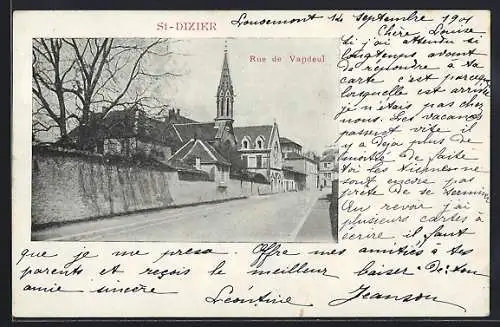 St-DIZIER
Rue de Vandeul
Louvemont 14 Septembre 1901
Chère Louise
Si j'ai attendu si
longtemps avant
de répondre à ta
carte c'est parceque
lorsquelle est arrivée
je n'étais pas chez
nous. Les vacances
passent vite il
y a déjà plus de
moitié de faite
toi les tiennes ne
sont encore pas
prête de se terminer
Au revoir j'ai
plusieurs cartes à
écrire il faut
que je me presse. Offre mes amitiés à tes
parents et reçois le meilleur baiser de ton
amie sincère Léontine Jeanson